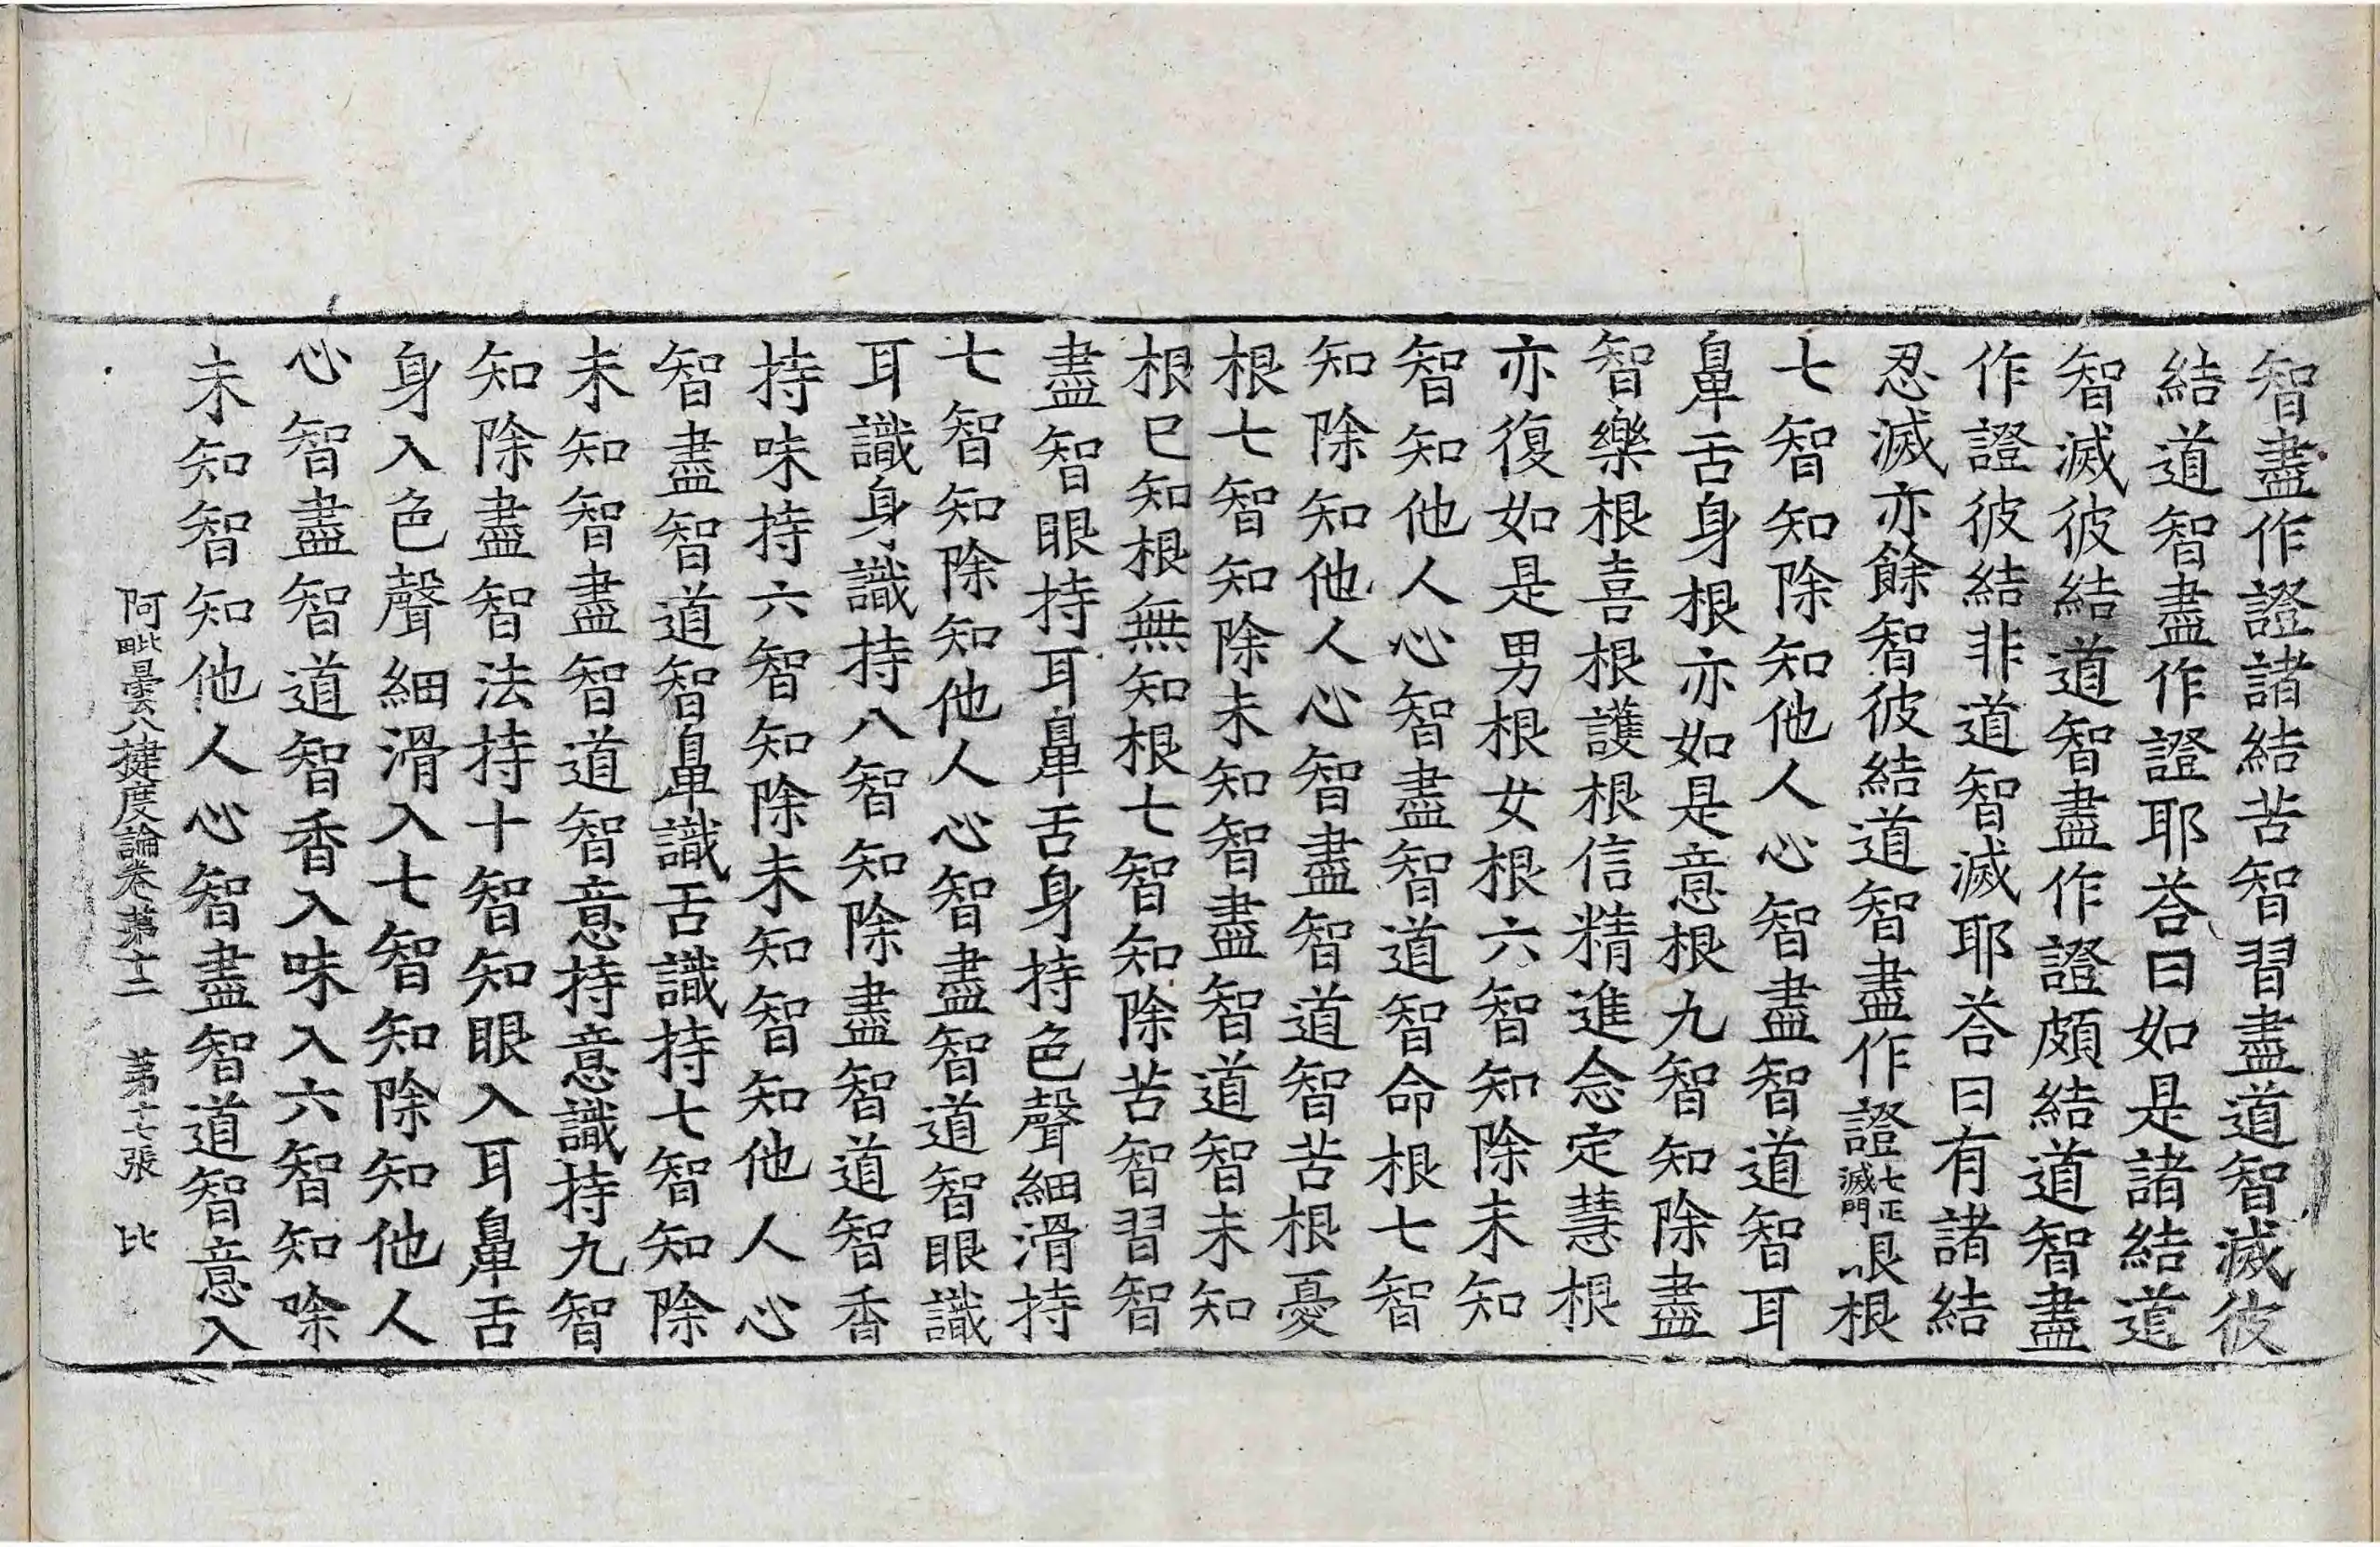 智盡作證諸結苦智習盡道智滅彼
結道智盡作證耶荅曰如是諸結道
智滅彼結道智盡作證頗結道智盡
作證彼結非道智滅耶荅曰有諸結
忍滅亦餘智彼結道智盡作證七正滅門眼根
七智知除知他人心智盡智道智耳
鼻舌身根亦如是意根九智知除盡
智樂根喜根護根信精進念定慧根
亦復如是男根女根六智知除未知
智知他人心智盡智道智命根七智
知除知他人心智盡智道智苦根憂
根七智知除未知智盡智道智未知
根已知根無知根七智知除苦智習智
盡智眼持耳鼻舌身持色聲細滑持
七智知除知他人心智盡智道智眼識
耳識身識持八智知除盡智道智香
持味持六智知除未知智知他人心
智盡智道智鼻識舌識持七智知除
未知智盡智道智意持意識持九智
知除盡智法持十智知眼入耳鼻舌
身入色聲細滑入七智知除知他人
心智盡智道智香入味入六智知除
未知智知他人心智盡智道智意入
阿毗曇八揵度論卷第十二 第十七張 比